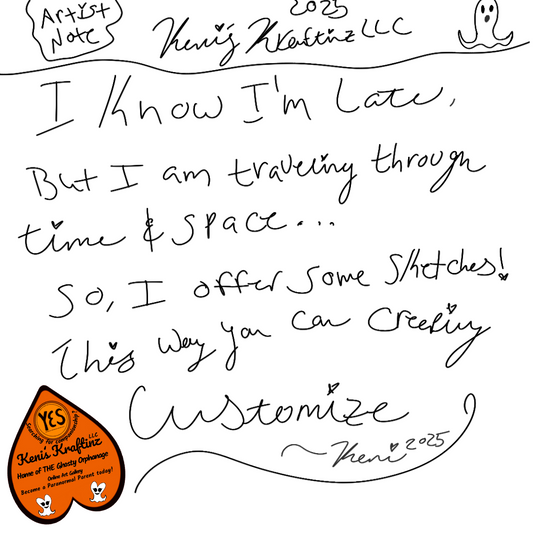 Artist
Note
2025
Keni's Kraftinz LLC
I know I'm Late,
But I am traveling through
time & space...
So, I offer some sketches!
This way you can creepily
Customize
~Keni 2025
YES
Searching for companionship?
Keni's Kraftinz LLC
Home of THE Ghosty Orphanage
Online Art Gallery
Become a Paranormal Parent today!